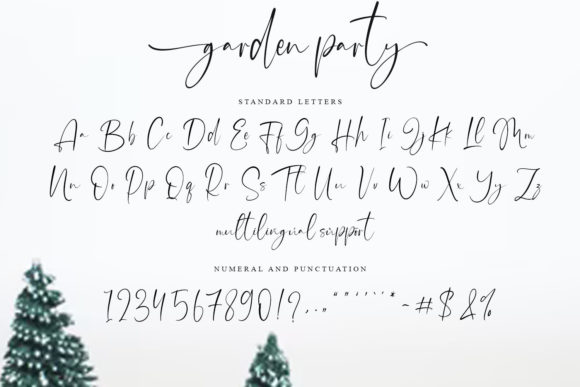 garden party
STANDARD LETTERS
Aa Bb Cc Dd Ee Ff Gg Hh Ii Jj Kk Ll Mm
Nn Oo Pp Qq Rr Ss Tt Uu Vv Ww Xx Yy Zz
multilingual support
NUMERAL AND PUNCTUATION
1234567890!?,..,, “”‘’'* ~#$&%